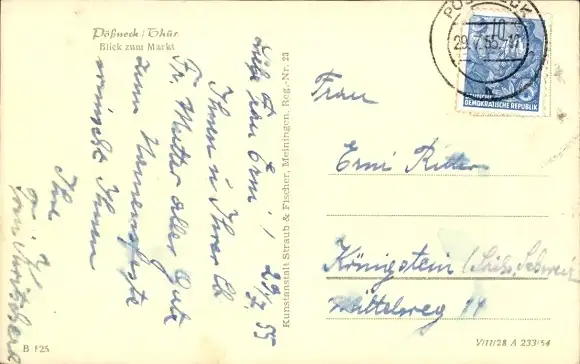 Pößneck / Thür.
Blick zum Markt
29/7. 55
Liebe Frau Erni!
Ihnen u Ihrer lb
Fr. Mutter alles Gute
zum Namensfeste
wünscht Ihnen
Ihre
Kunstanstalt Straub & Fischer, Meiningen, Reg.-Nr. 23
PÖSSNECK
29.7.55
10
DEUTSCHE DEMOKRATISCHE REPUBLIK
Frau
Erni Ritter
Königstein / Sächs. Schweiz
Mittelweg 14
B 125
V/11/28 A 233/54